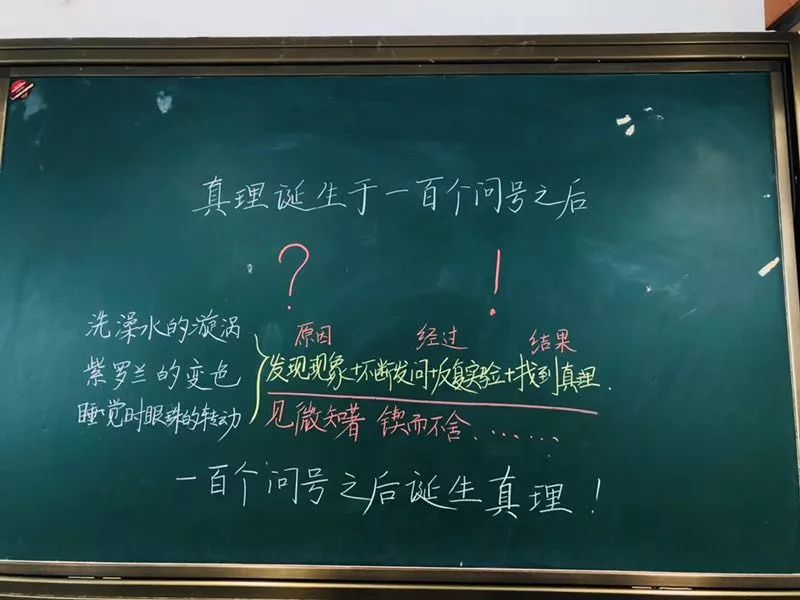 真理诞生于一百个问号之后
? !
洗澡水的漩涡
紫罗兰的变色
睡觉时眼珠的转动
原因 经过 结果
发现现象+不断发问+反复实验+找到真理.
见微知著 锲而不舍.……
一百个问号之后诞生真理!